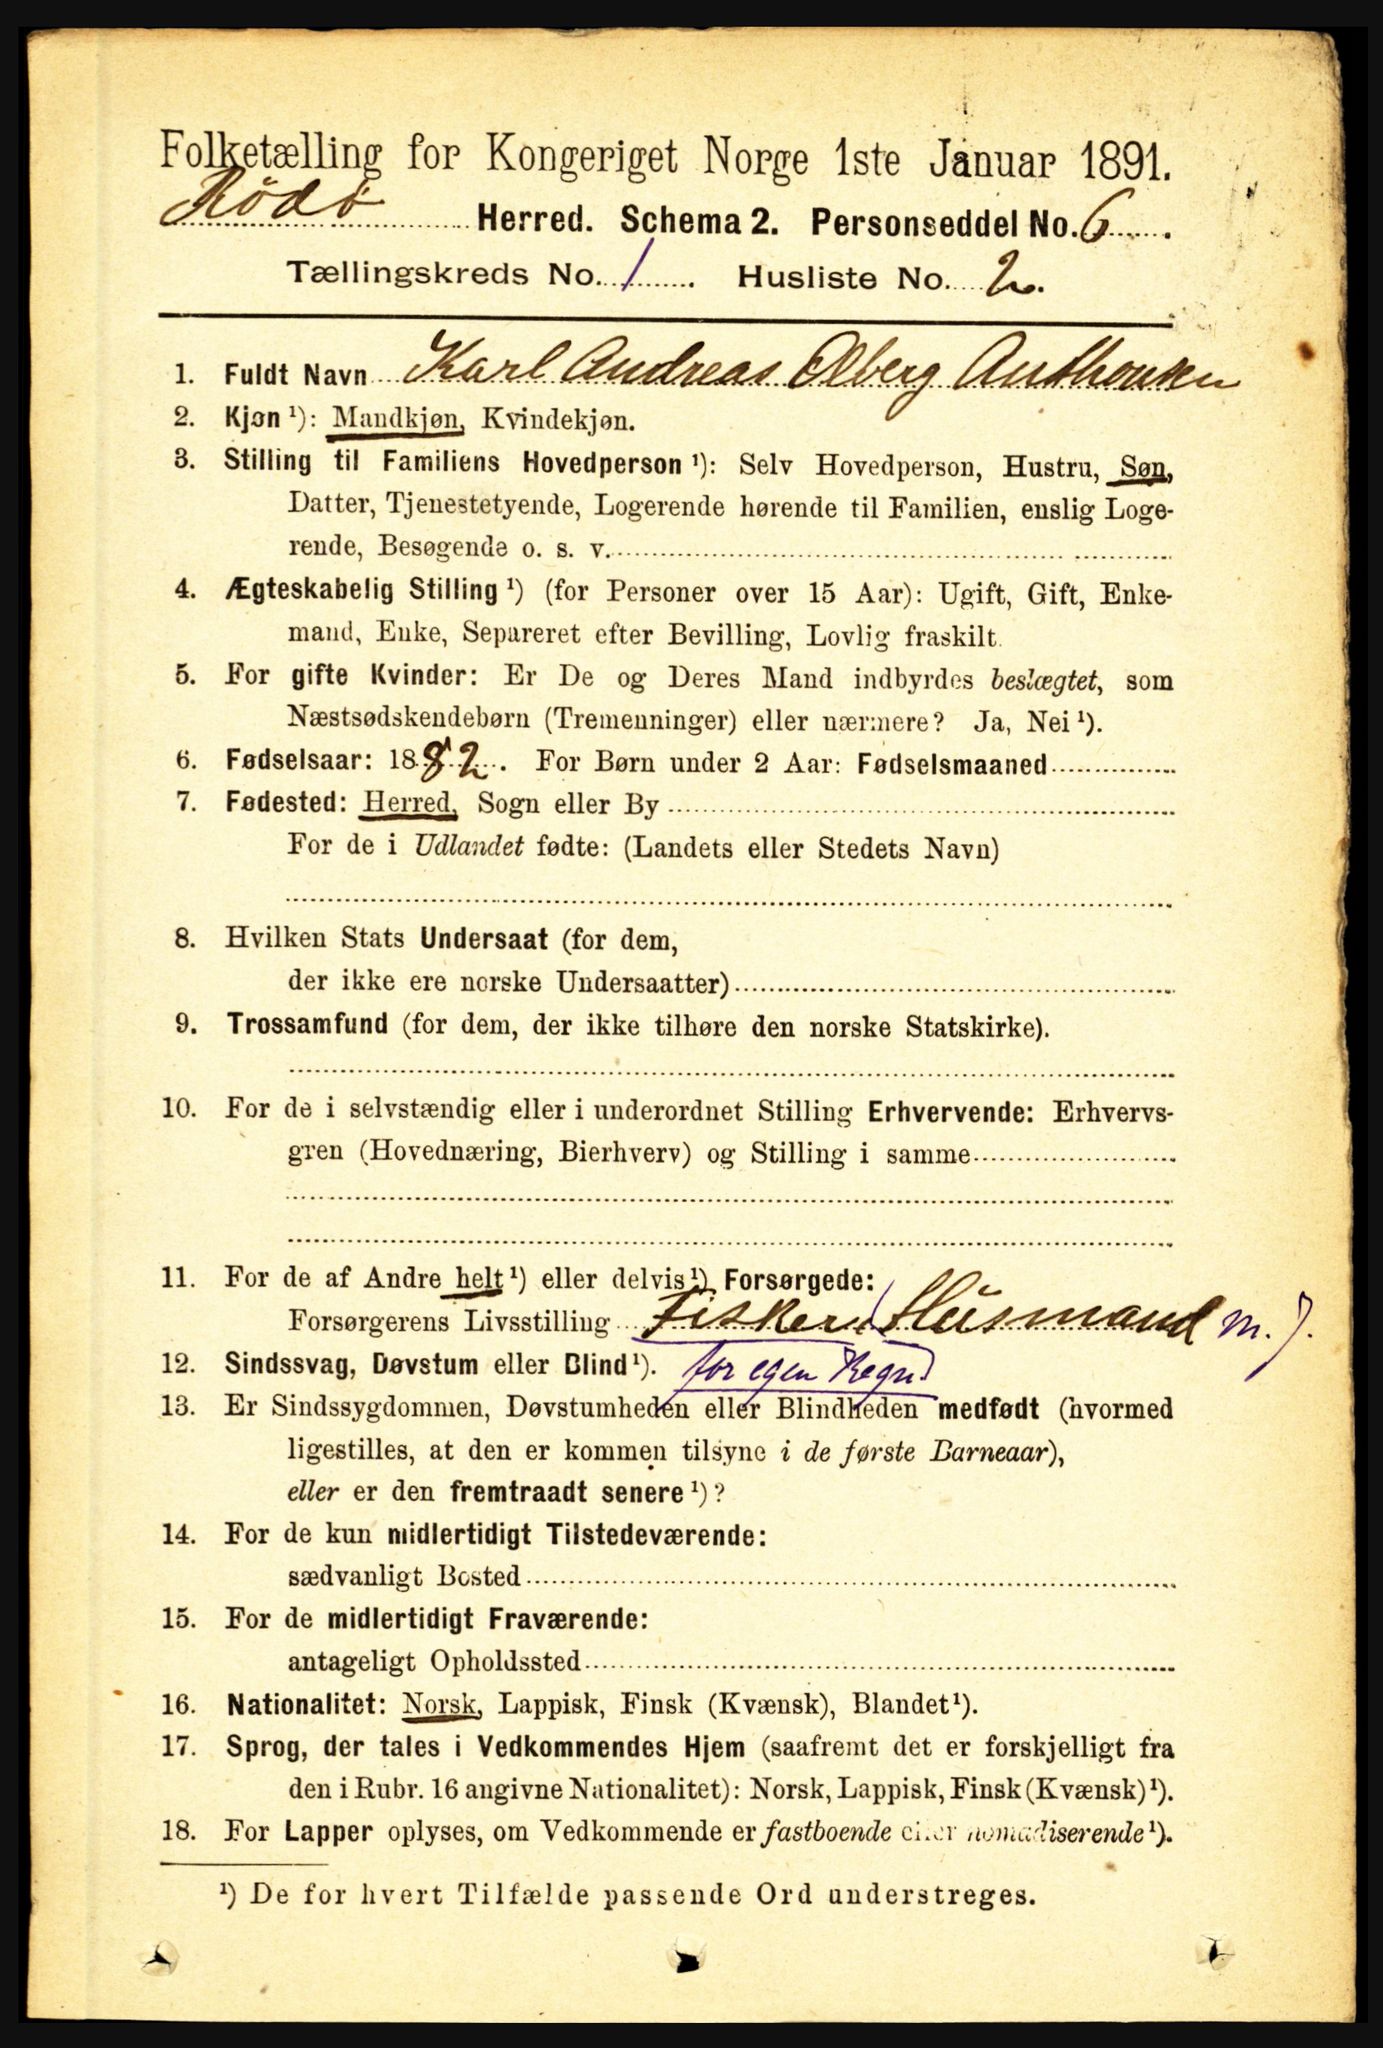 Folketælling for Kongeriget Norge 1ste Januar 1891.
Rödö Herred. Schema 2. Personseddel No. 6
Tællingskreds No. 1 Husliste No. 2.
1. Fuldt Navn Karl Andreas Olberg Anthonsen
2. Kjøn ¹): Mandkjøn, Kvindekjøn.
3. Stilling til Familiens Hovedperson ¹): Selv Hovedperson, Hustru, Søn,
Datter, Tjenestetyende, Logerende hørende til Familien, enslig Loge-
rende, Besøgende o. s. v.
4. Ægteskabelig Stilling ¹) (for Personer over 15 Aar): Ugift, Gift, Enke-
mand, Enke, Separeret efter Bevilling, Lovlig fraskilt.
5. For gifte Kvinder: Er De og Deres Mand indbyrdes beslægtet, som
Næstsødskendebørn (Tremenninger) eller nærmere? Ja, Nei ¹).
6. Fødselsaar: 1882. For Børn under 2 Aar: Fødselsmaaned
7. Fødested: Herred, Sogn eller By
For de i Udlandet fødte: (Landets eller Stedets Navn)
8. Hvilken Stats Undersaat (for dem,
der ikke ere norske Undersaatter)
9. Trossamfund (for dem, der ikke tilhøre den norske Statskirke).
10. For de i selvstændig eller i underordnet Stilling Erhvervende: Erhvervs-
gren (Hovednæring, Bierhverv) og Stilling i samme
11. For de af Andre helt ¹) eller delvis ¹) Forsørgede:
Forsørgerens Livsstilling Fisker / Husmand m. J.
12. Sindssvag, Døvstum eller Blind ¹). for egen Regn.
13. Er Sindssygdommen, Døvstumheden eller Blindheden medfødt (hvormed
ligestilles, at den er kommen tilsyne i de første Barneaar),
eller er den fremtraadt senere ¹)?
14. For de kun midlertidigt Tilstedeværende:
sædvanligt Bosted
15. For de midlertidigt Fraværende:
antageligt Opholdssted
16. Nationalitet: Norsk, Lappisk, Finsk (Kvænsk), Blandet ¹).
17. Sprog, der tales i Vedkommendes Hjem (saafremt det er forskjelligt fra
den i Rubr. 16 angivne Nationalitet): Norsk, Lappisk, Finsk (Kvænsk) ¹).
18. For Lapper oplyses, om Vedkommende er fastboende eller nomadiserende ¹).
¹) De for hvert Tilfælde passende Ord understreges.